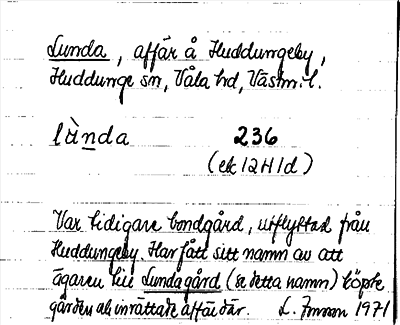 Lunda, affär å Huddungeby,
Huddunge sn, Våla hd, Västm. l.
lùnda 236
(ek 12H1d)
Var tidigare bondgård, utflyttad från
Huddungeby. Har fått sitt namn av att
ägaren till Lundagård (se detta namn) köpte
gården och inrättade affär där. L. 1971